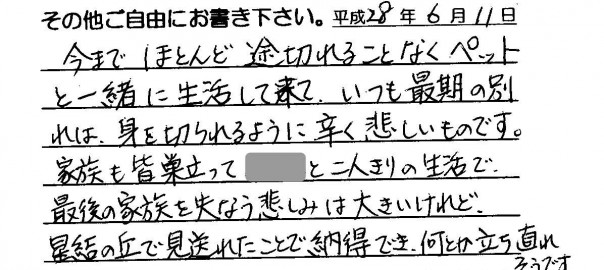 その他ご自由にお書き下さい。平成28年6月11日
今まで ほとんど 途切れることなくペット
と一緒に生活して来て、いつも最期の別
れは、身を切られるように辛く悲しいものです。
家族も皆巣立って と二人きりの生活で、
最後の家族を失なう悲しみは大きいけれど、
星結の丘で見送れたことで納得でき、何とか立ち直れ
そうです